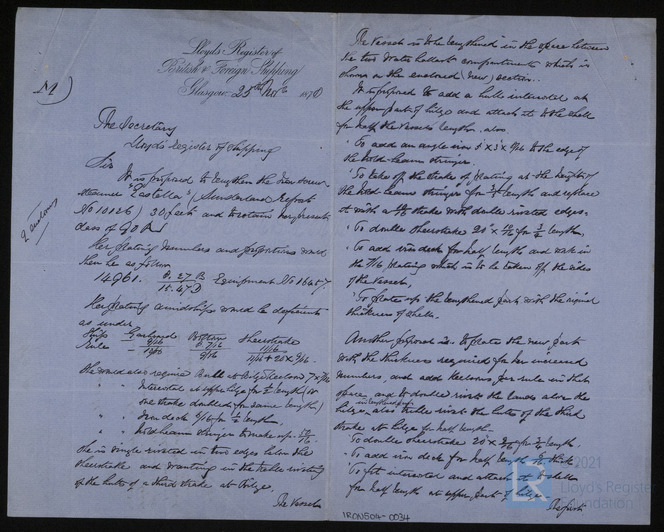 Lloyd's Register of
British & Foreign Shipping
Glasgow 25th Novr 1870
The Secretary
Lloyds Register of Shipping
Sir
It is proposed to lengthen the Iron Screw
Steamer (Sunderland Report
No 10126) 30 feet and to retain her present
class of 90 A
2 enclosures
Her plating numbers and proportions would
then be as follow
14961. 8.27 B Equipment No 16457
Her plating amidships would be deficient
as under
Ships Garboard Bottom Sheerstrake
Rule
She would also require Bulb at Bilge Keelson
" Intercostal at upper bilge for ½ length (or
one strake doubled for same length)
" Iron deck for ½ length
" Hold beam stringer
She is single riveted in two edges below the
Sheerstrake and wanting in the treble riveting
of the butts of a third strake at bilge.
The Vessel
The Vessel is to be lengthened in the space between
the two water ballast compartments which is
shown on the enclosed new section.
It is proposed to add a bulb intercostal at
the upper part of bilge and attach it to the shell
for half the vessels length, also
To add an angle iron to the edge of
the hold beam stringer.
To take off the strake of plating at the height of
the hold beam stringer for ½ length and replace
it with a strake with double riveted edges.
To double sheerstrake for ¾ length.
To add iron deck for half length and work in
the plating which is to be taken off the sides
of the vessel,
To plate up the lengthened part with the original
thickness of shell.
Another proposal is to plate the new part
with the thickness required for her increased
numbers, and add keelsons per rule in that
space, and to double rivet the lands above the
bilge, in lengthened part also treble rivet the butts of the third
strake at bilge for half length
To double sheerstrake for ¾ length.
To add iron deck for half length thick
To fit intercostal and attach it to shell
for half length at upper part of bilge
The first
IRON504-0034
© 2021
Lloyd's Register
Foundation